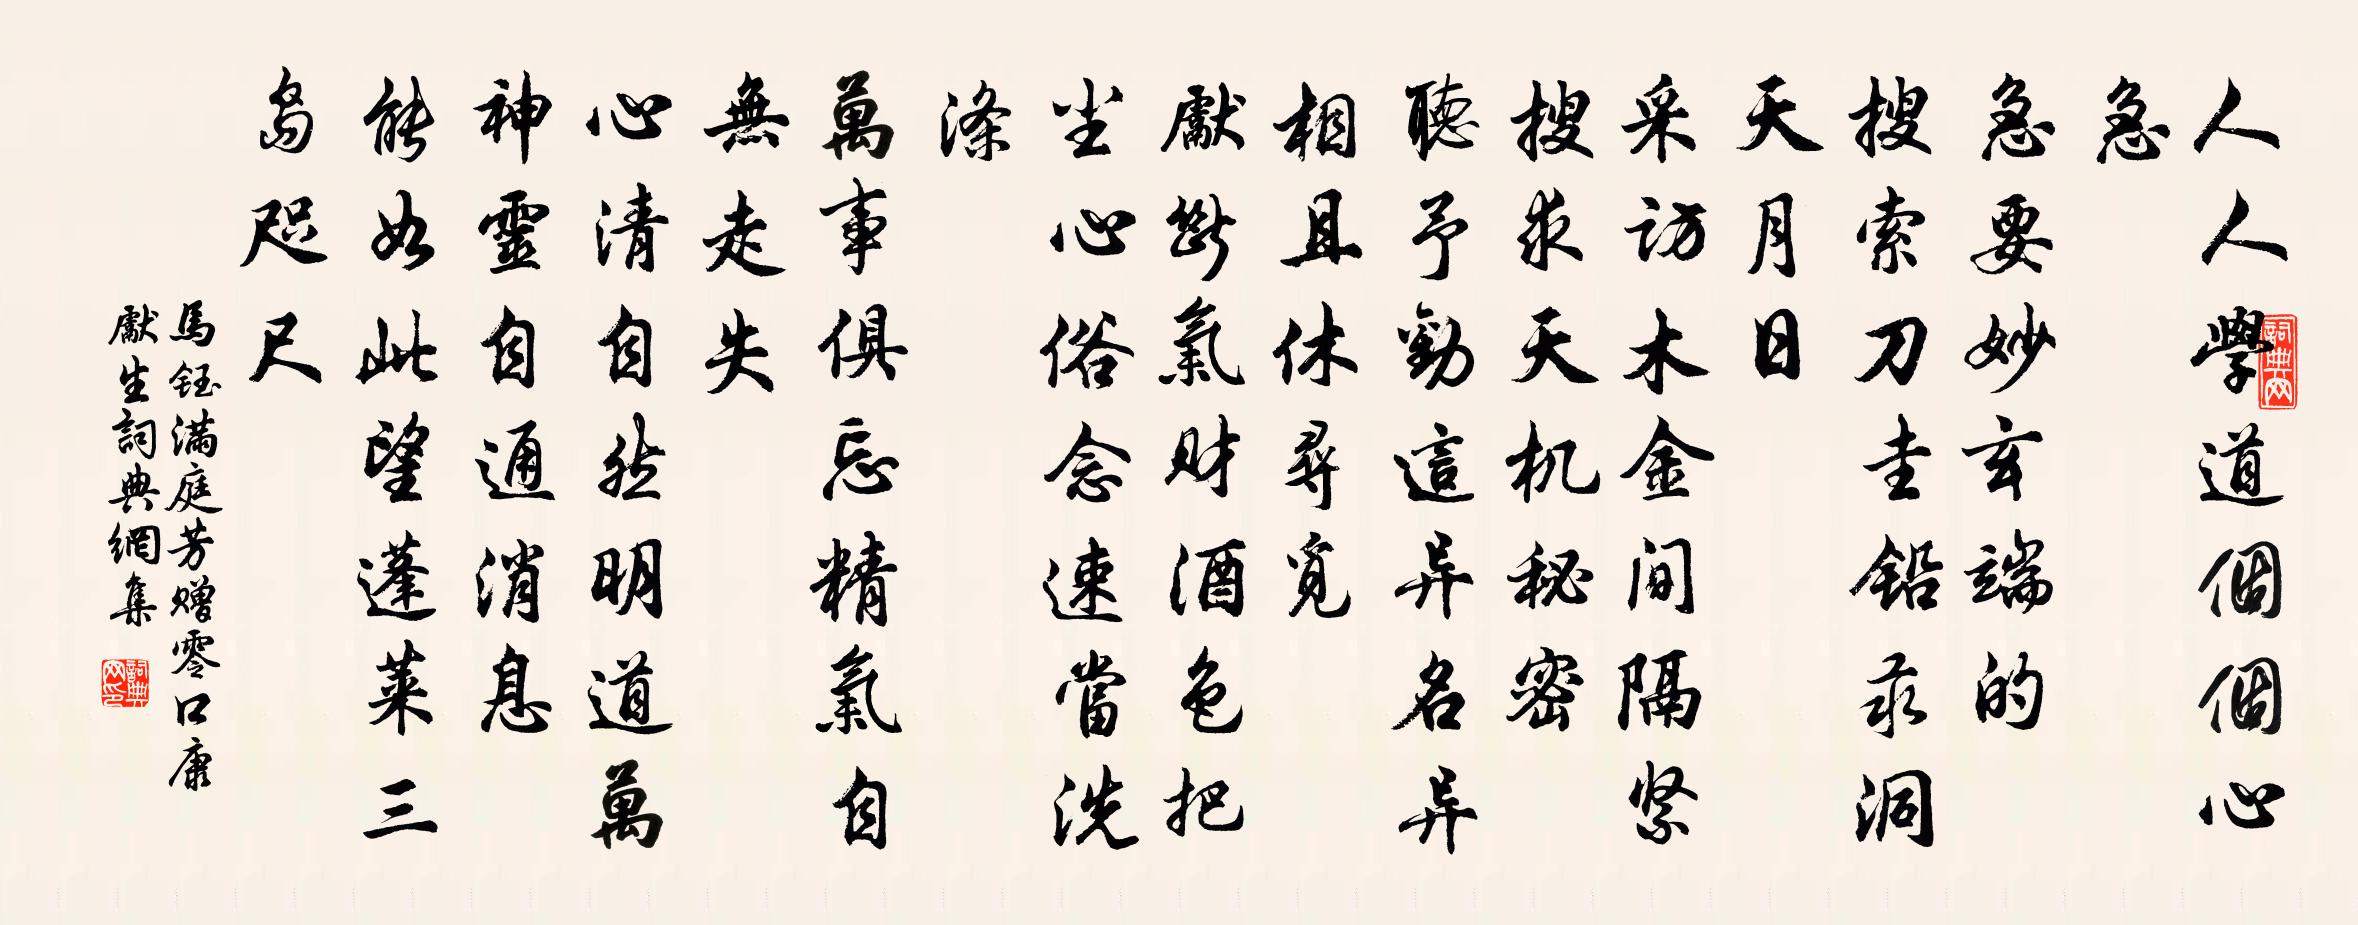 人人學道個個心
急
急要妙玄端的
搜索刀圭鉛汞洞
天月日
采訪木金間隔緊
搜求天机秘密
聽予勸這异名异
相且休尋覓
獻斷氣財酒色把
尘心俗念速當洗
滌
萬事俱忘精氣自
無走失
心清自然明道萬
神靈自通消息
能如此望蓬萊三
島咫尺
馬鈺滿庭芳贈零口康
獻生詞典網集
詞典网
詞典网印